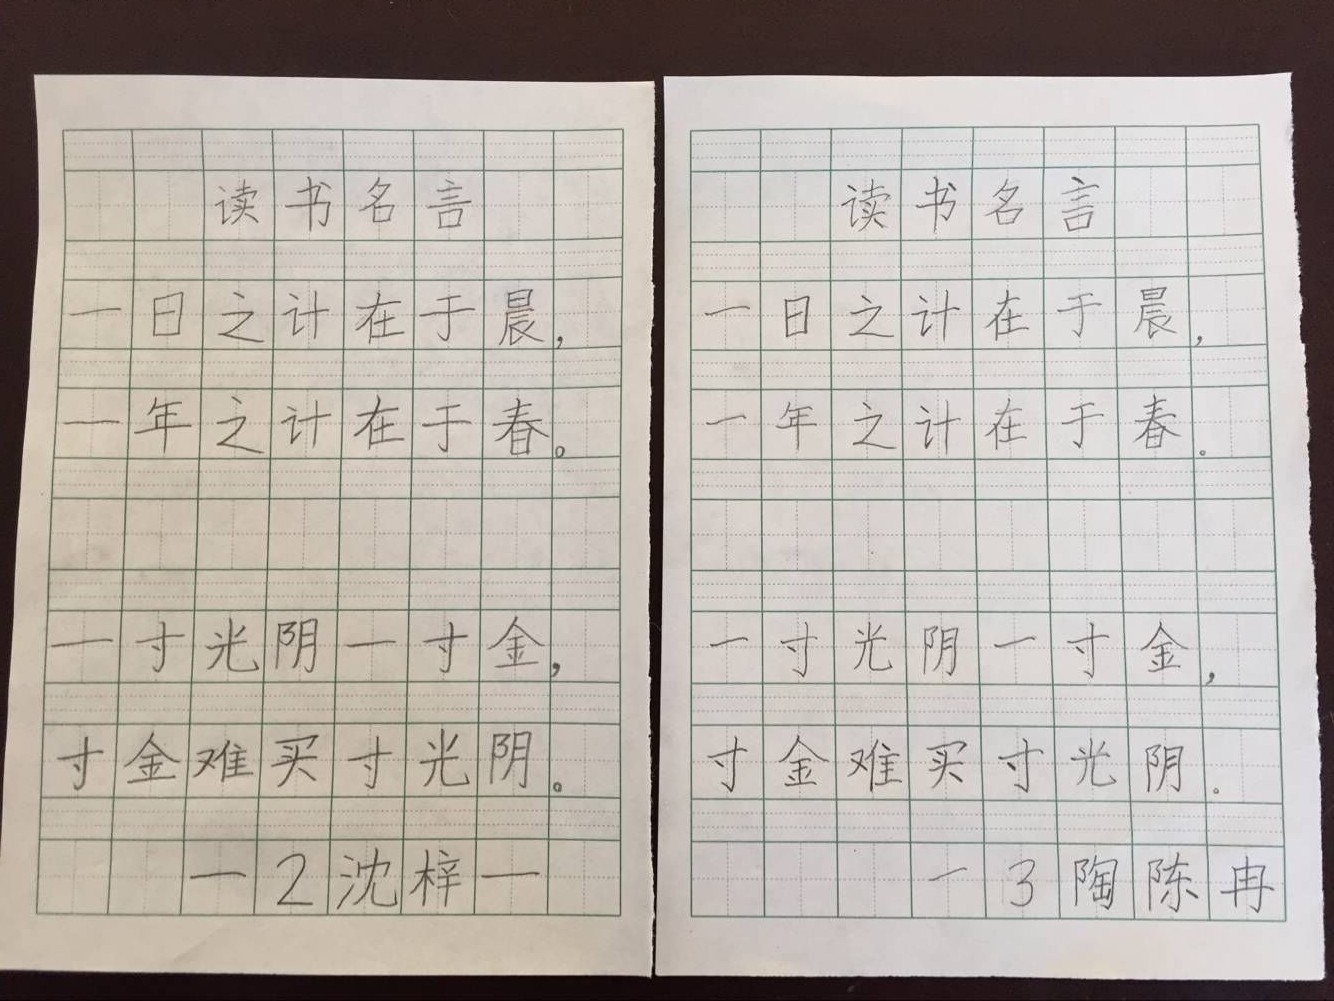 读书名言
一日之计在于晨，
一年之计在于春。
一寸光阴一寸金，
寸金难买寸光阴。
一2沈梓一
读书名言
一日之计在于晨，
一年之计在于春。
一寸光阴一寸金，
寸金难买寸光阴。
一3陶陈冉